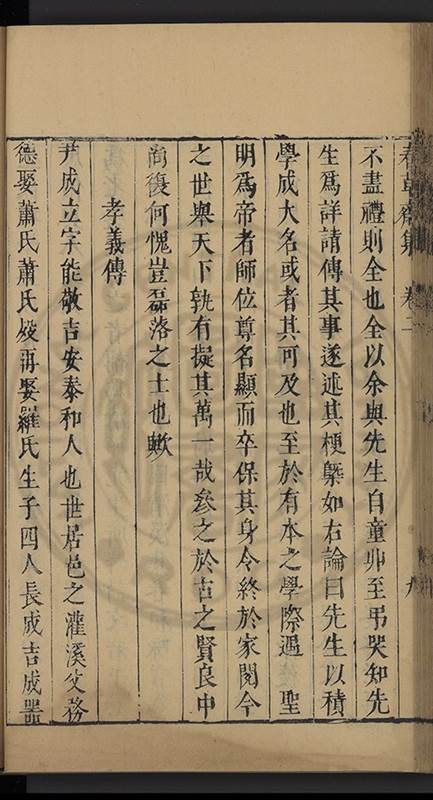 春草齋集 卷二 九
不盡禮則全也全以余與先生自童丱至弔哭知先
生爲詳請傳其事遂述其梗槩如右論曰先生以積
學成大名或者其可及也至於有本之學際遇 聖
明爲帝者師位尊名顯而卒保其身令終於家閱今
之世舉天下孰有擬其萬一哉參之於古之賢良中
尚復何愧豈磊落之士也歟
孝義傳
尹成立字能敬吉安泰和人也世居邑之灌溪父務
德娶蕭氏蕭氏歿再娶羅氏生子四人長成吉成器